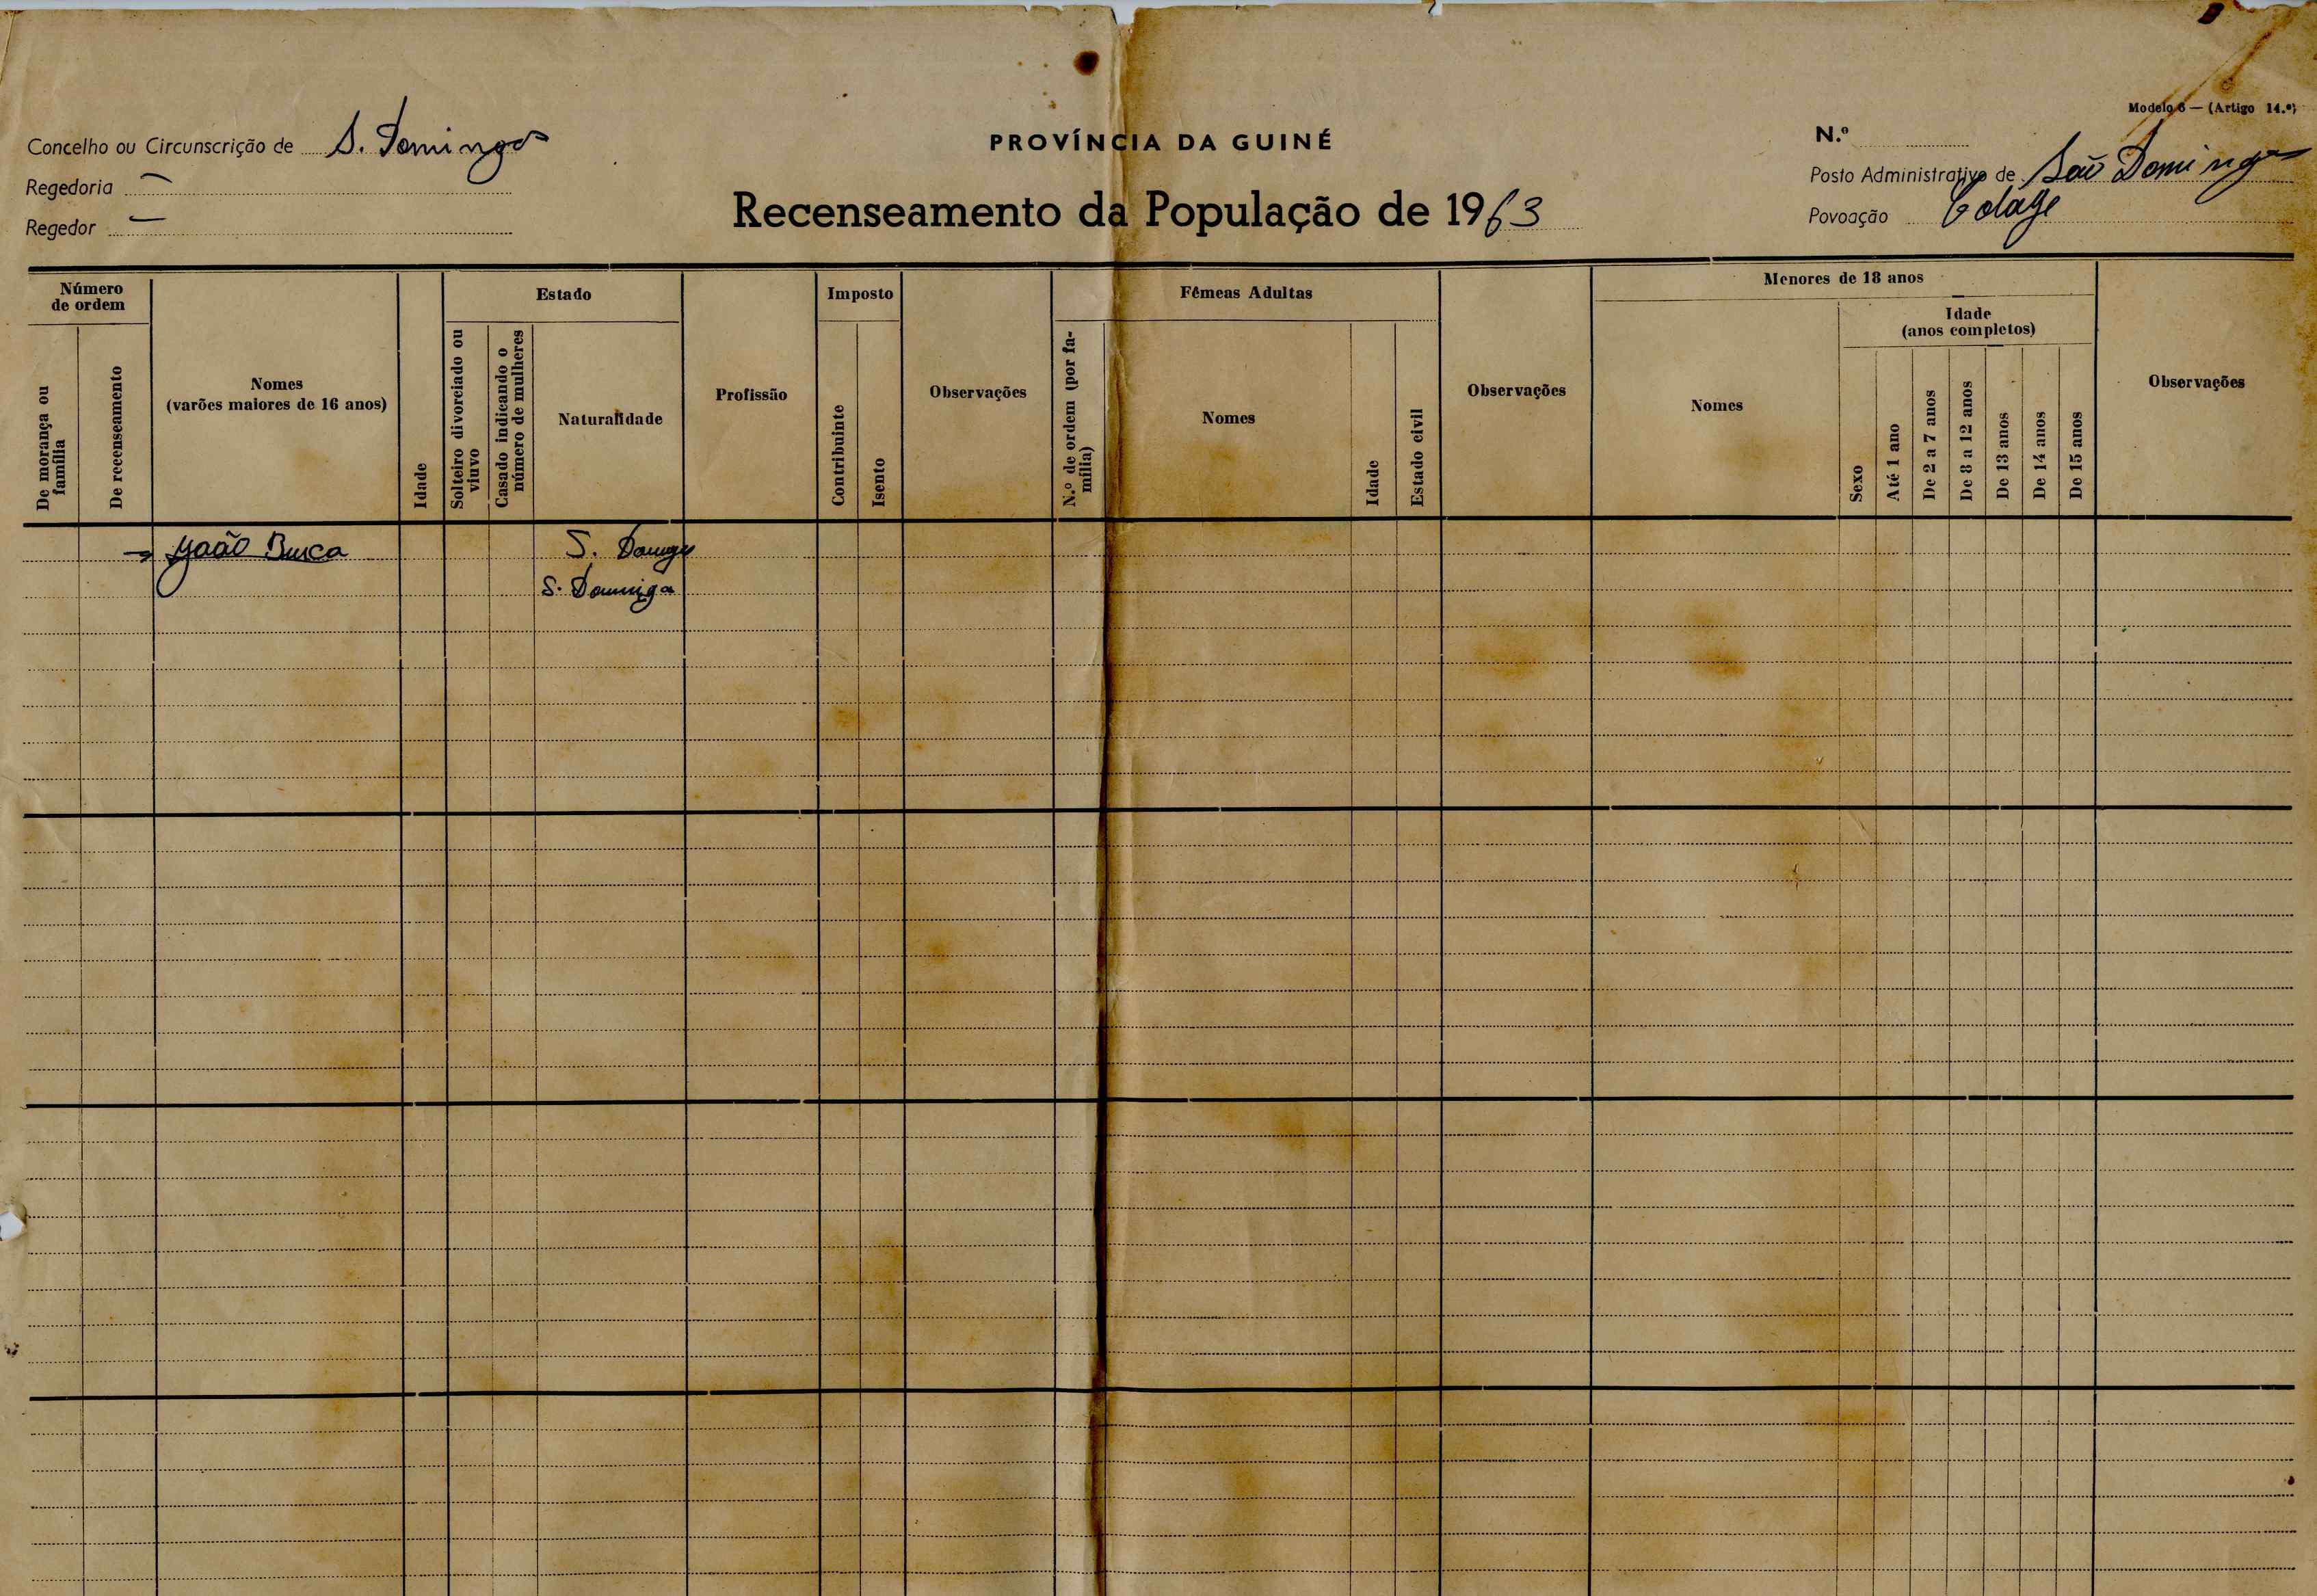 Modelo 6 — (Artigo 14.º)
Concelho ou Circunscrição de S. Domingos
Regedoria —
Regedor —
PROVÍNCIA DA GUINÉ
Recenseamento da População de 1963
N.º
Posto Administrativo de São Domingos
Povoação
Número
de ordem
De morança ou
família
De recenseamento
Nomes
(varões maiores de 16 anos)
Idade
Estado
Solteiro divorciado ou
viuvo
Casado indicando o
número de mulheres
Naturalidade
Profissão
Imposto
Contribuinte
Isento
Observações
Fêmeas Adultas
N.º de ordem (por fa-
mília)
Nomes
Idade
Estado civil
Observações
Menores de 18 anos
Nomes
Idade
(anos completos)
Sexo
Até 1 ano
De 2 a 7 anos
De 8 a 12 anos
De 13 anos
De 14 anos
De 15 anos
Observações
S. Domingos
S. Domingos